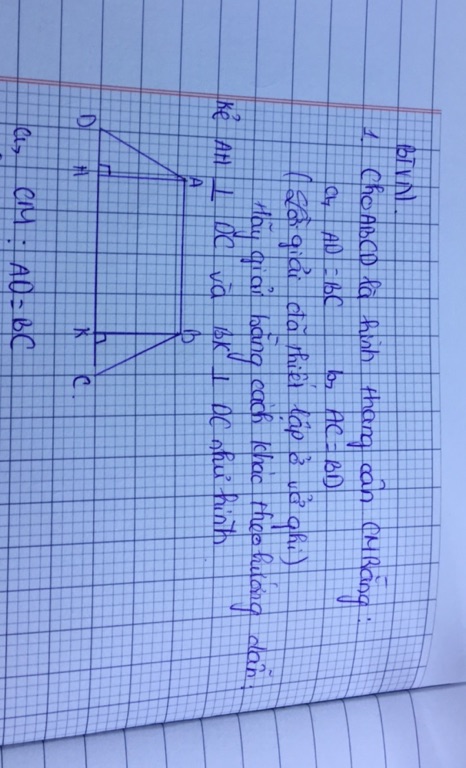 BTVN.
1. Cho ABCD là hình thang cân CMRằng:
a, AD = BC b, AC = BD
(Lời giải đã thiết lập ở vở ghi)
Hãy giải bằng cách khác theo hướng dẫn:
Kẻ AH ⊥ DC và BK ⊥ DC như hình
A B
D H K C
a, CM: AD = BC